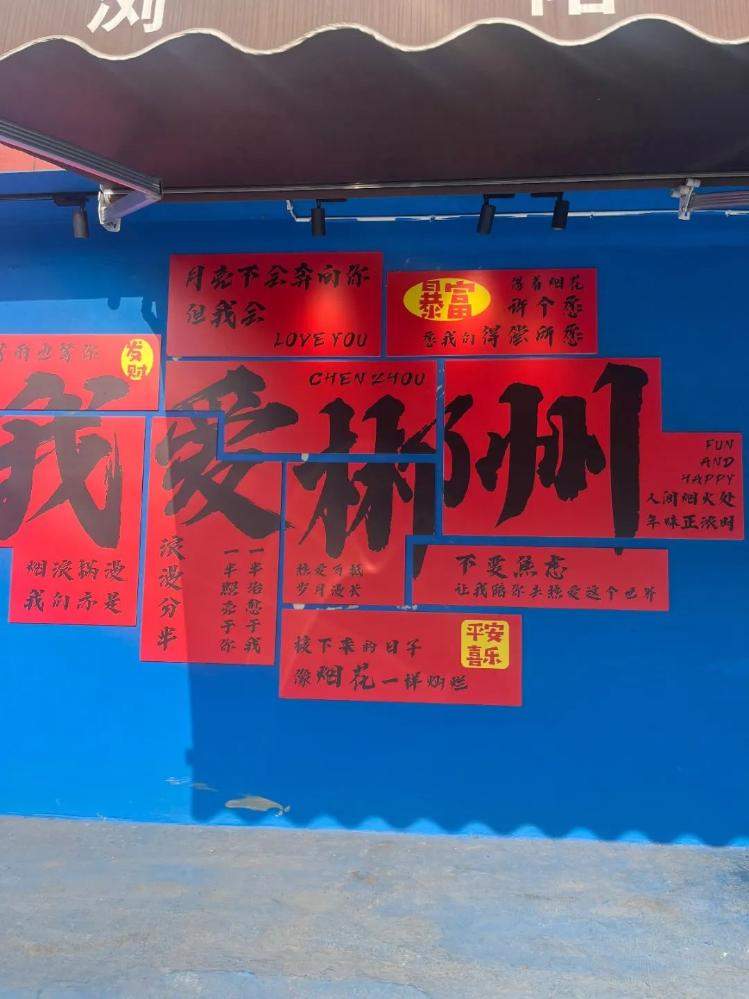 浏 阳
月亮不会奔向你
但我会
LOVE YOU
暴富
借着烟花
许个愿
愿我们得偿所愿
也等你
发财
CHEN ZHOU
我爱郴州
FUN
AND
HAPPY
人间烟火处
年味正浓时
烟涙锅漫
我们亦是
浪漫分半
一半治愈于我
一半熙添于你
热爱可抵
岁月漫长
不要焦虑
让我陪你去热爱这个世界
接下来的日子
像烟花一样灿烂
平安
喜乐